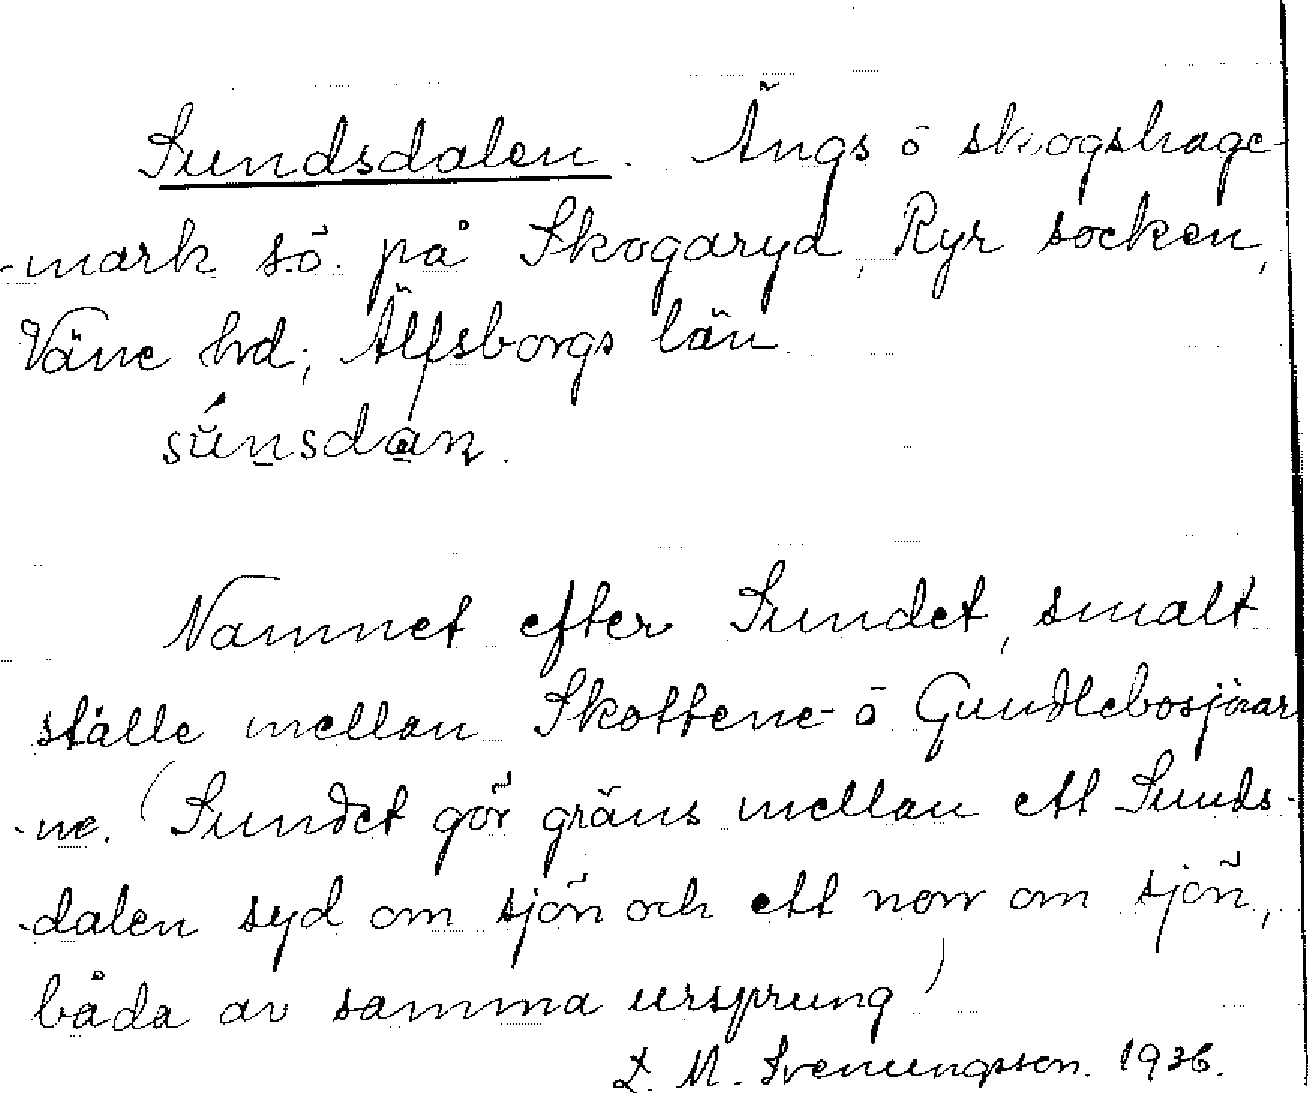 Sundsdalen. Ängs ō skogshage-
-mark s.ö. på Skogaryd, Ryr socken,
Väne hd, Älfsborgs län
sŭ́nsdan.
Namnet efter Sundet, smalt
ställe mellan Skottene- ō Gundlebosjöar-
-ne. (Sundet gör gräns mellan ett Sunds-
-dalen syd om sjön och ett norr om sjön,
båda av samma ursprung)
L. M. Svenungsson. 1936.